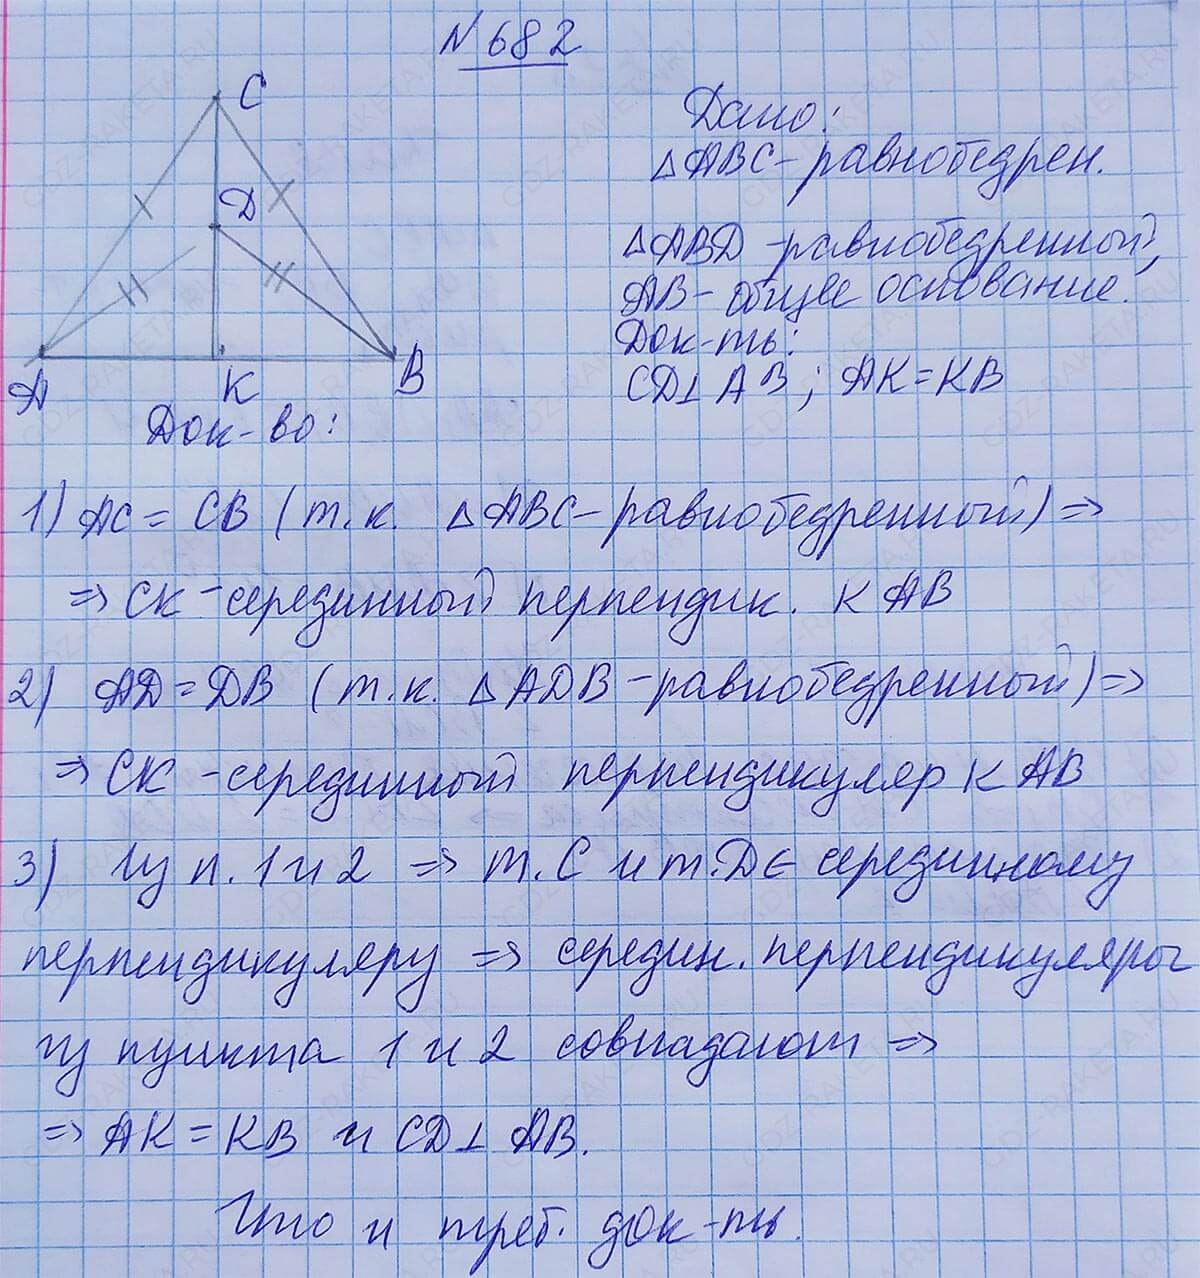 N 682
C
D
A
K
B
Дано:
△ABC - равнобедрен.
△ABD - равнобедренный,
AB - общее основание.
Док-ть:
CD⊥AB; AK=KB
Док-во:
1) AC = CB (т.к. △ABC - равнобедренный) =>
=> CK - серединный перпендик. к AB
2) AD = DB (т.к. △ADB - равнобедренный) =>
=> CK - серединный перпендикуляр к AB
3) Из п. 1 и 2 => т. C и т. D ∈ серединному
перпендикуляру => середин. перпендикуляры
из пункта 1 и 2 совпадают =>
=> AK = KB и CD⊥AB.
Что и треб. док-ть.
GDZ-RAKETA.RU